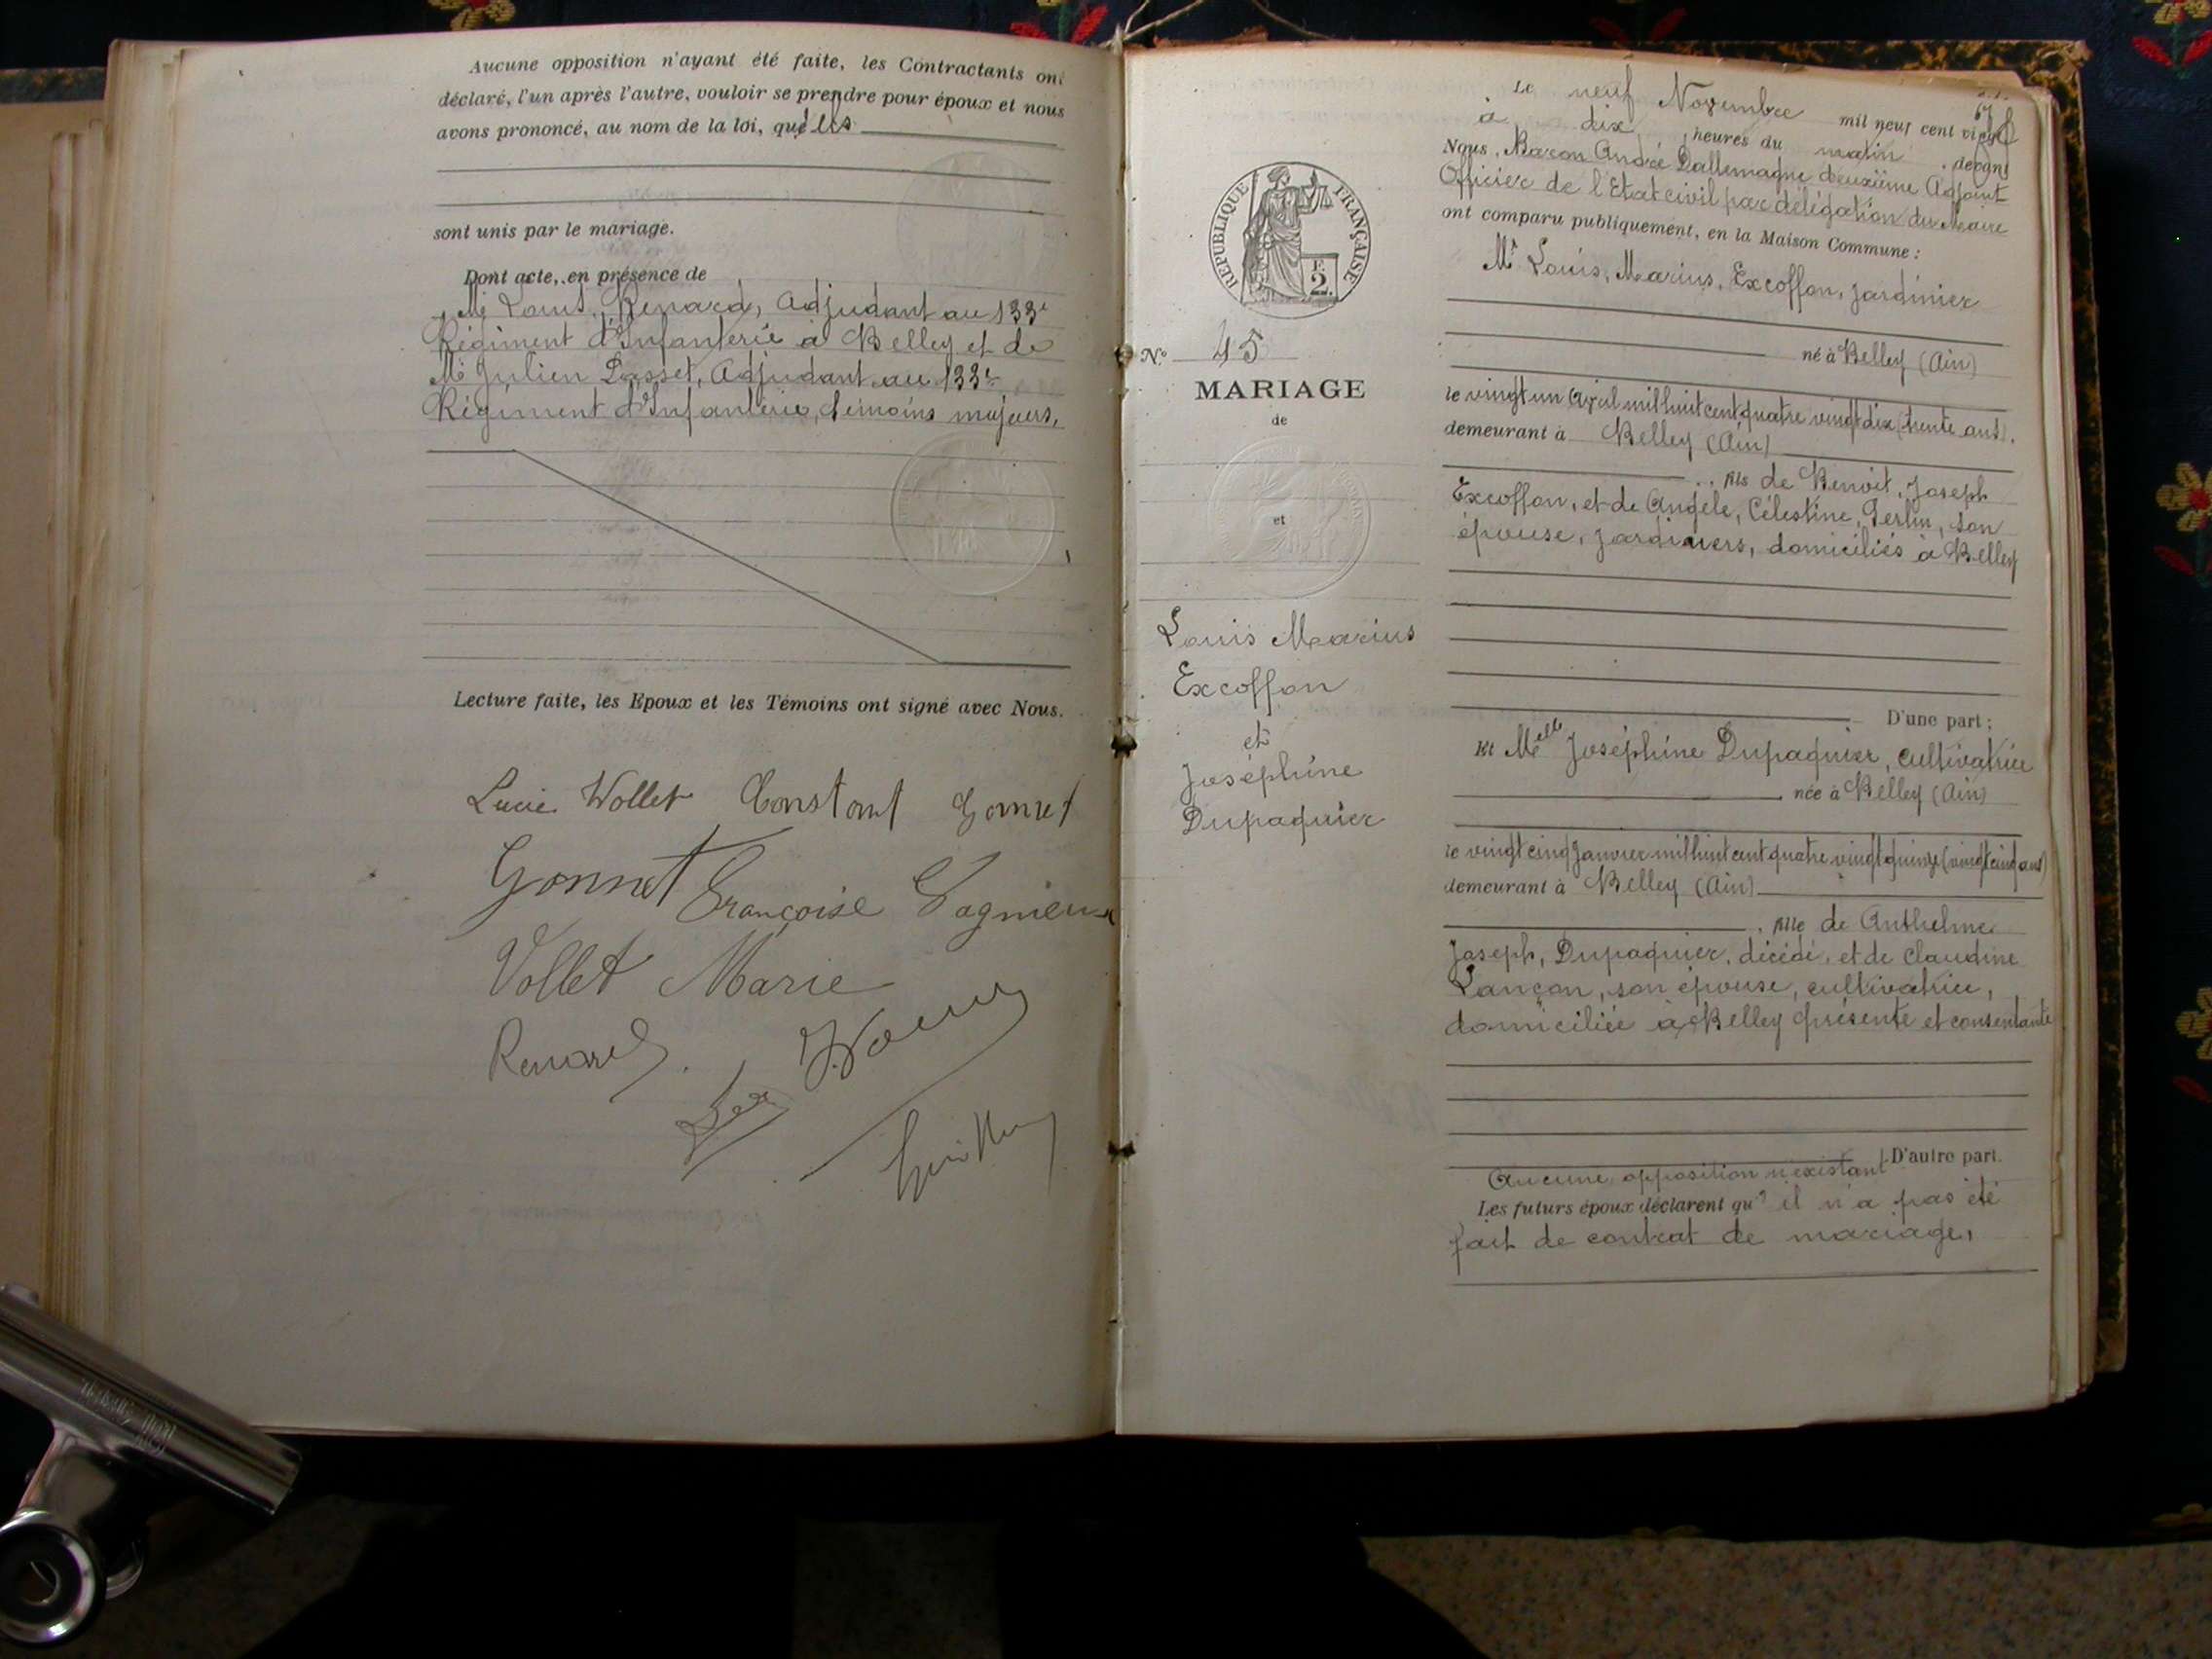 Aucune opposition n'ayant été faite, les Contractants ont
déclaré, l'un après l'autre, vouloir se prendre pour époux et nous
avons prononcé, au nom de la loi, qu'ils
sont unis par le mariage.
Dont acte, en présence de
Mr Louis, Renard, Adjudant au 133e
Régiment d'Infanterie à Belley et de
Mr Julien Lasset, Adjudant au 133e
Régiment d'Infanterie, témoins majeurs,
Lecture faite, les Epoux et les Témoins ont signé avec Nous.
Lucie Wollet Constant Gonnet
Gonnet Françoise Pagnieux
Vollet Marie
Renard
Le neuf Novembre mil neuf cent vingt
à dix heures du matin, devant
Nous, Baron André Dallemagne deuxième Adjoint
Officier de l'Etat civil par délégation du Maire
ont comparu publiquement, en la Maison Commune :
Mr Louis, Marius, Excoffon, jardinier
né à Belley (Ain)
le vingt un Avril mil huit cent quatre vingt dix (trente ans),
demeurant à Belley (Ain)
, fils de Benoit, Joseph
Excoffon, et de Angèle, Célestine, Perlin, son
épouse, jardiniers, domiciliés à Belley
D'une part ;
Et Melle Joséphine Dupaquier, cultivatrice
née à Belley (Ain)
le vingt cinq Janvier mil huit cent quatre vingt quinze (vingt cinq ans)
demeurant à Belley (Ain)
, fille de Anthelme
Joseph, Dupaquier, décédé, et de Claudine
Lançon, son épouse, cultivatrice,
domiciliée à Belley présente et consentante
D'autre part.
Aucune opposition n'existant
Les futurs époux déclarent qu'il n'a pas été
fait de contrat de mariage,
RÉPUBLIQUE FRANÇAISE
F.
2.
No 45
MARIAGE
de
et
Louis Marius
Excoffon
et
Joséphine
Dupaquier